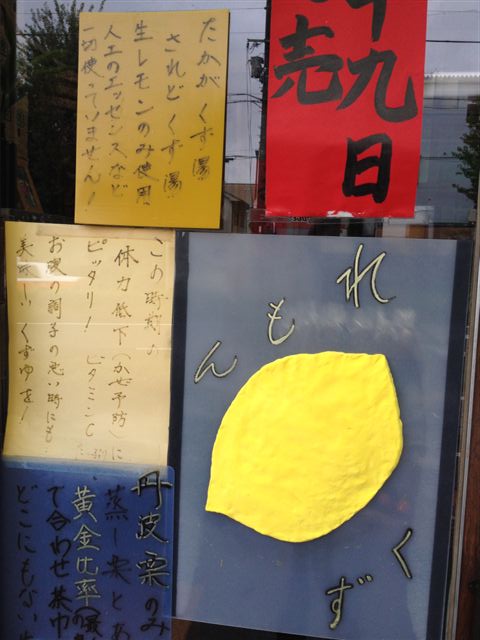 たかが くず湯
されど くず湯
生レモンのみ使用
人工のエッセンスなど
一切使っていません!
九日
売
この時期の
体力低下(かぜ予防)に
ピッタリ! ビタミンC
お腹の調子の悪い時にも
美味しいくずゆを!
れもん
くず
丹波栗のみ
蒸し栗とあ
黄金比率
で合わせ茶巾
どこにもない